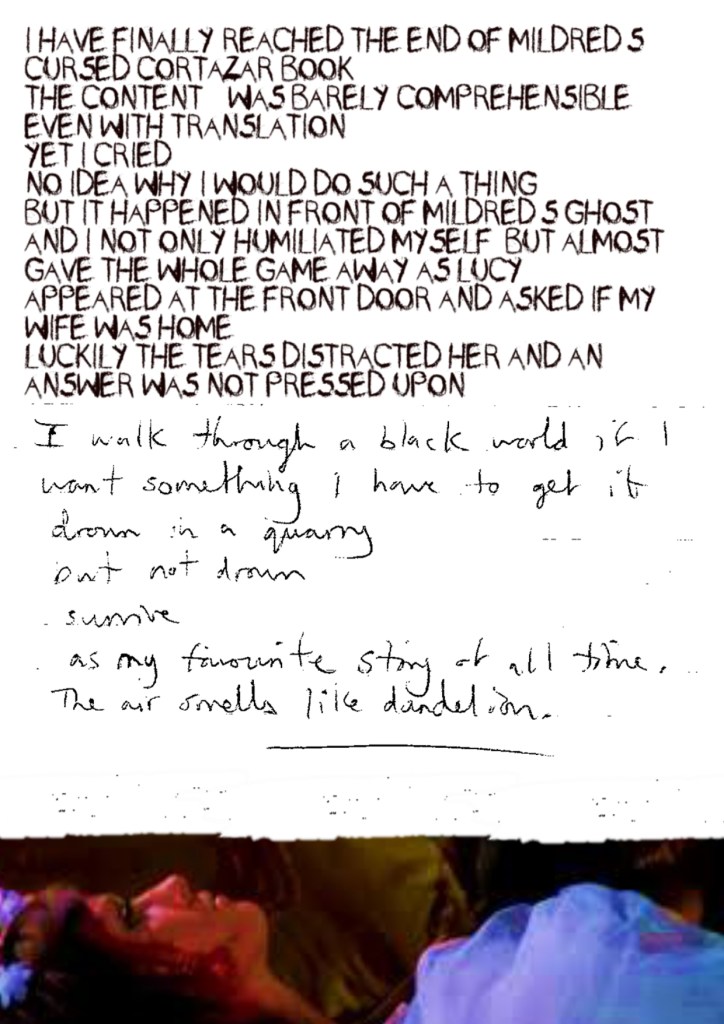 I HAVE FINALLY REACHED THE END OF MILDRED S
CURSED CORTAZAR BOOK
THE CONTENT WAS BARELY COMPREHENSIBLE
EVEN WITH TRANSLATION
YET I CRIED
NO IDEA WHY I WOULD DO SUCH A THING
BUT IT HAPPENED IN FRONT OF MILDRED S GHOST
AND I NOT ONLY HUMILIATED MYSELF BUT ALMOST
GAVE THE WHOLE GAME AWAY AS LUCY
APPEARED AT THE FRONT DOOR AND ASKED IF MY
WIFE WAS HOME
LUCKILY THE TEARS DISTRACTED HER AND AN
ANSWER WAS NOT PRESSED UPON
I walk through a black world if I
want something I have to get it
drown in a quarry
but not drown
survive
as my favourite story of all time.
The air smells like dandelion.